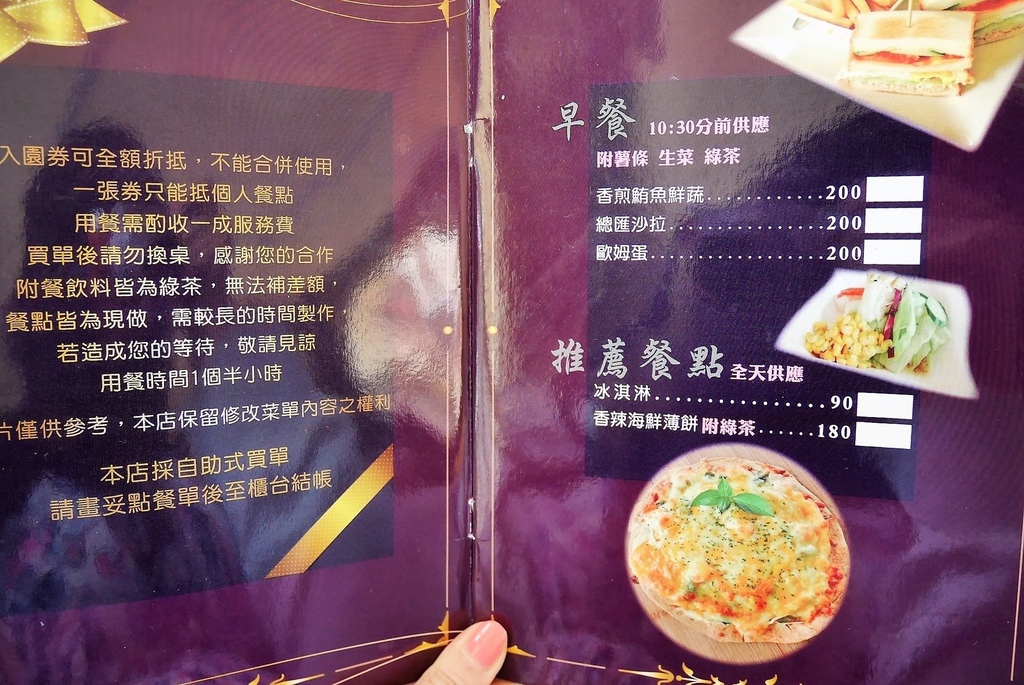 入園券可全額折抵，不能合併使用，
一張券只能抵個人餐點
用餐需酌收一成服務費
買單後請勿換桌，感謝您的合作
附餐飲料皆為綠茶，無法補差額，
餐點皆為現做，需較長的時間製作，
若造成您的等待，敬請見諒
用餐時間1個半小時
片僅供參考，本店保留修改菜單內容之權利
本店採自助式買單
請畫妥點餐單後至櫃台結帳
早餐 10:30分前供應
附薯條 生菜 綠茶
香煎鮪魚鮮蔬..............200
總匯沙拉..................200
歐姆蛋....................200
推薦餐點 全天供應
冰淇淋....................90
香辣海鮮薄餅 附綠茶......180